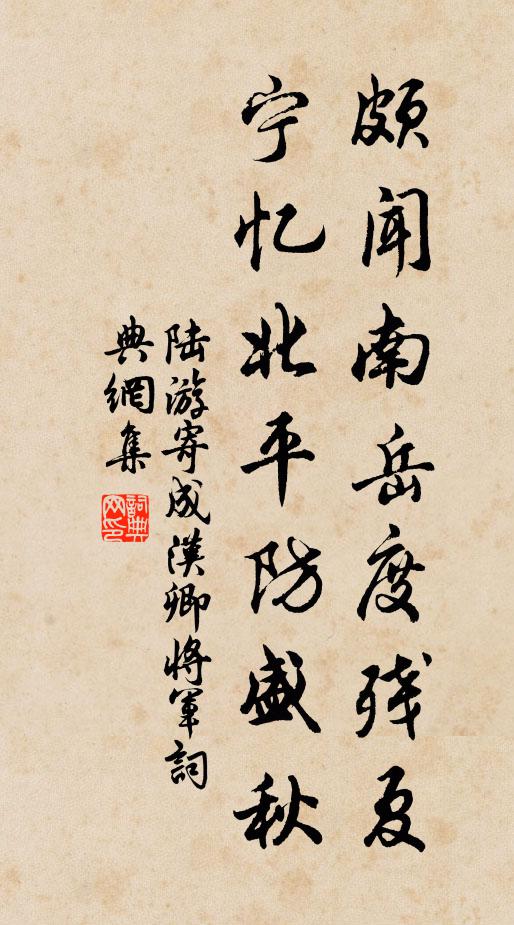 颇闻南岳度残夏
宁忆北平防盛秋
陆游寄成漢卿将軍詞
典網集
詞典网印